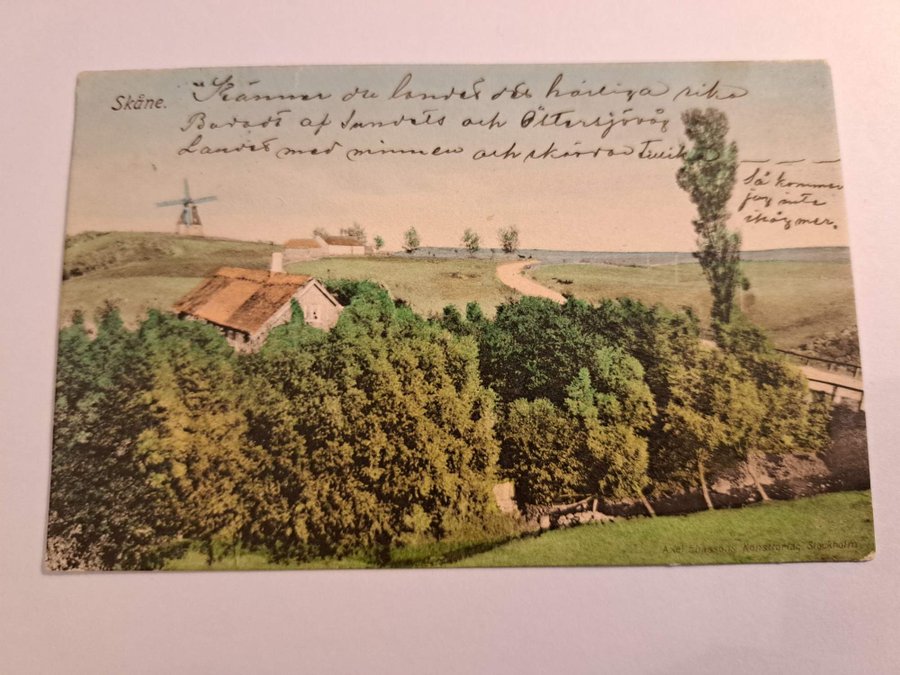 Skåne.
"Känner du landet det härliga rika
Badadt af Sundets och Östersjövåg
Landet med minnen och skördar
Så kommer
jag inte
ihåg mer.
Axel Eliassons Konstförlag, Stockholm